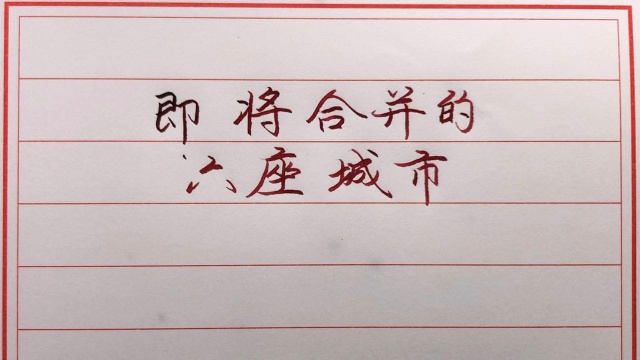 即将合并的
六座城市